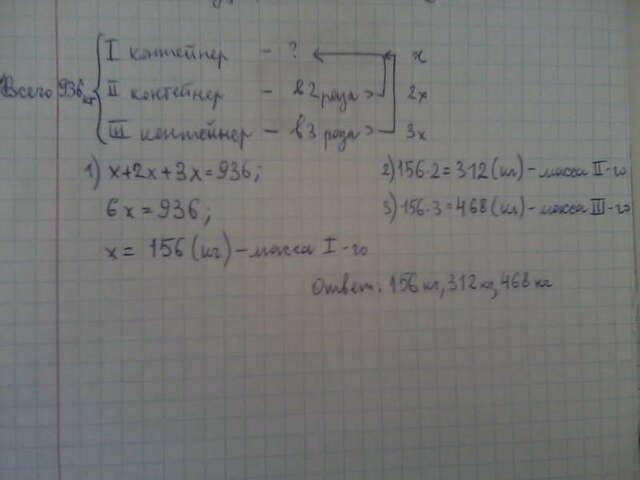 I контейнер - ? x
Всего 936 кг II контейнер - в 2 раза > 2x
III контейнер - в 3 раза > 3x
1) x+2x+3x=936;
6x=936;
x= 156 (кг) - масса I-го
2) 156·2=312 (кг) - масса II-го
3) 156·3=468 (кг) - масса III-го
Ответ: 156 кг, 312 кг, 468 кг